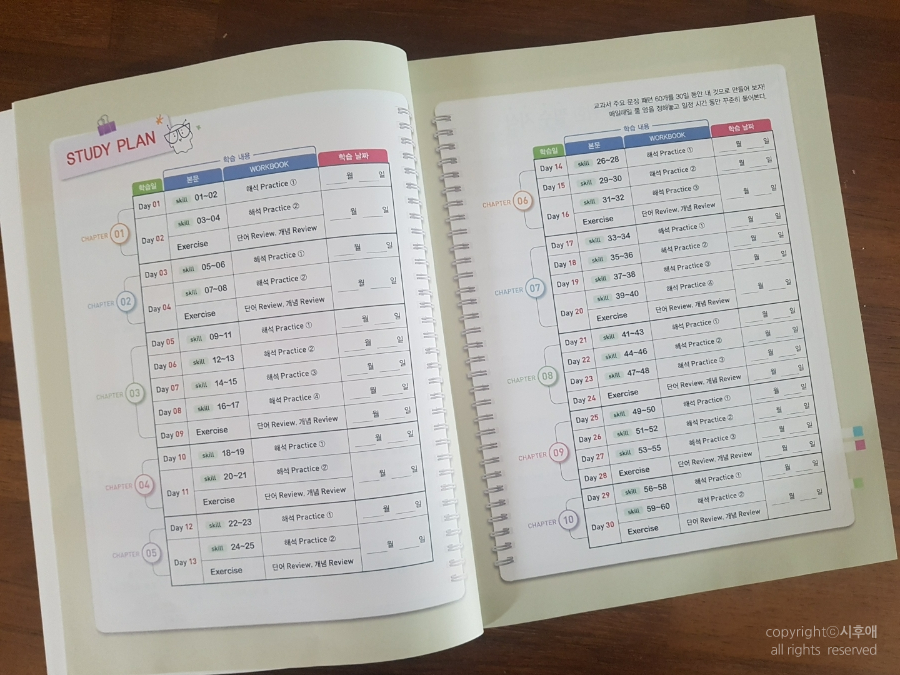 STUDY PLAN
학습 내용
학습일 본문 WORKBOOK 학습 날짜
CHAPTER 01
Day 01 skill 01~02 해석 Practice ① 월 일
Day 02 skill 03~04 해석 Practice ② 월 일
Exercise 단어 Review, 개념 Review
CHAPTER 02
Day 03 skill 05~06 해석 Practice ① 월 일
Day 04 skill 07~08 해석 Practice ② 월 일
Exercise 단어 Review, 개념 Review
CHAPTER 03
Day 05 skill 09~11 해석 Practice ① 월 일
Day 06 skill 12~13 해석 Practice ② 월 일
Day 07 skill 14~15 해석 Practice ③ 월 일
Day 08 skill 16~17 해석 Practice ④ 월 일
Day 09 Exercise 단어 Review, 개념 Review 월 일
CHAPTER 04
Day 10 skill 18~19 해석 Practice ① 월 일
Day 11 skill 20~21 해석 Practice ② 월 일
Exercise 단어 Review, 개념 Review
CHAPTER 05
Day 12 skill 22~23 해석 Practice ① 월 일
Day 13 skill 24~25 해석 Practice ② 월 일
Exercise 단어 Review, 개념 Review
교과서 주요 문장 패턴 60개를 30일 동안 내 것으로 만들어 보자!
매일매일 풀 양을 정해놓고 일정 시간 동안 꾸준히 풀어본다.
학습 내용
학습일 본문 WORKBOOK 학습 날짜
CHAPTER 06
Day 14 skill 26~28 해석 Practice ① 월 일
Day 15 skill 29~30 해석 Practice ② 월 일
Day 16 skill 31~32 해석 Practice ③ 월 일
Exercise 단어 Review, 개념 Review
CHAPTER 07
Day 17 skill 33~34 해석 Practice ① 월 일
Day 18 skill 35~36 해석 Practice ② 월 일
Day 19 skill 37~38 해석 Practice ③ 월 일
Day 20 skill 39~40 해석 Practice ④ 월 일
Exercise 단어 Review, 개념 Review
CHAPTER 08
Day 21 skill 41~43 해석 Practice ① 월 일
Day 22 skill 44~46 해석 Practice ② 월 일
Day 23 skill 47~48 해석 Practice ③ 월 일
Day 24 Exercise 단어 Review, 개념 Review 월 일
CHAPTER 09
Day 25 skill 49~50 해석 Practice ① 월 일
Day 26 skill 51~52 해석 Practice ② 월 일
Day 27 skill 53~55 해석 Practice ③ 월 일
Day 28 Exercise 단어 Review, 개념 Review 월 일
CHAPTER 10
Day 29 skill 56~58 해석 Practice ① 월 일
Day 30 skill 59~60 해석 Practice ② 월 일
Exercise 단어 Review, 개념 Review
copyrightⓒ시후애
all rights reserved